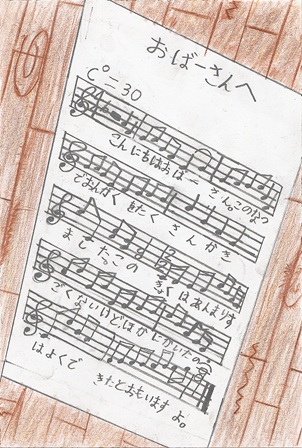 おばーさんへ
C°-30
こんにちはおばーさん。このなつ
でおんがくをたくさんかき
ましたっこのきょくはあんまりす
ごくないけど、ほかしかいたの
はよくできたとおもいますよ。